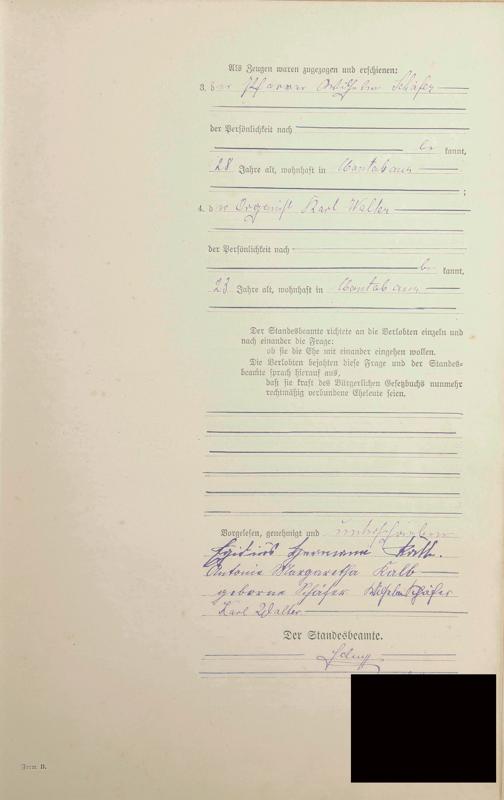 Als Zeugen waren zugezogen und erschienen:
3. der Pfarrer Wilhelm Schäfer
der Persönlichkeit nach
be kannt,
28 Jahre alt, wohnhaft in Montabaur
;
4. der Organist Karl Walter
der Persönlichkeit nach
be kannt,
23 Jahre alt, wohnhaft in Montabaur
Der Standesbeamte richtete an die Verlobten einzeln und
nach einander die Frage:
ob sie die Ehe mit einander eingehen wollen.
Die Verlobten bejahten diese Frage und der Standes-
beamte sprach hierauf aus,
daß sie kraft des Bürgerlichen Gesetzbuchs nunmehr
rechtmäßig verbundene Eheleute seien.
Vorgelesen, genehmigt und unterschrieben
Hermann Kalb.
Antonie Margaretha Kalb
geborne Schäfer Wilhelm Schäfer
Karl Walter
Der Standesbeamte.
Form B.